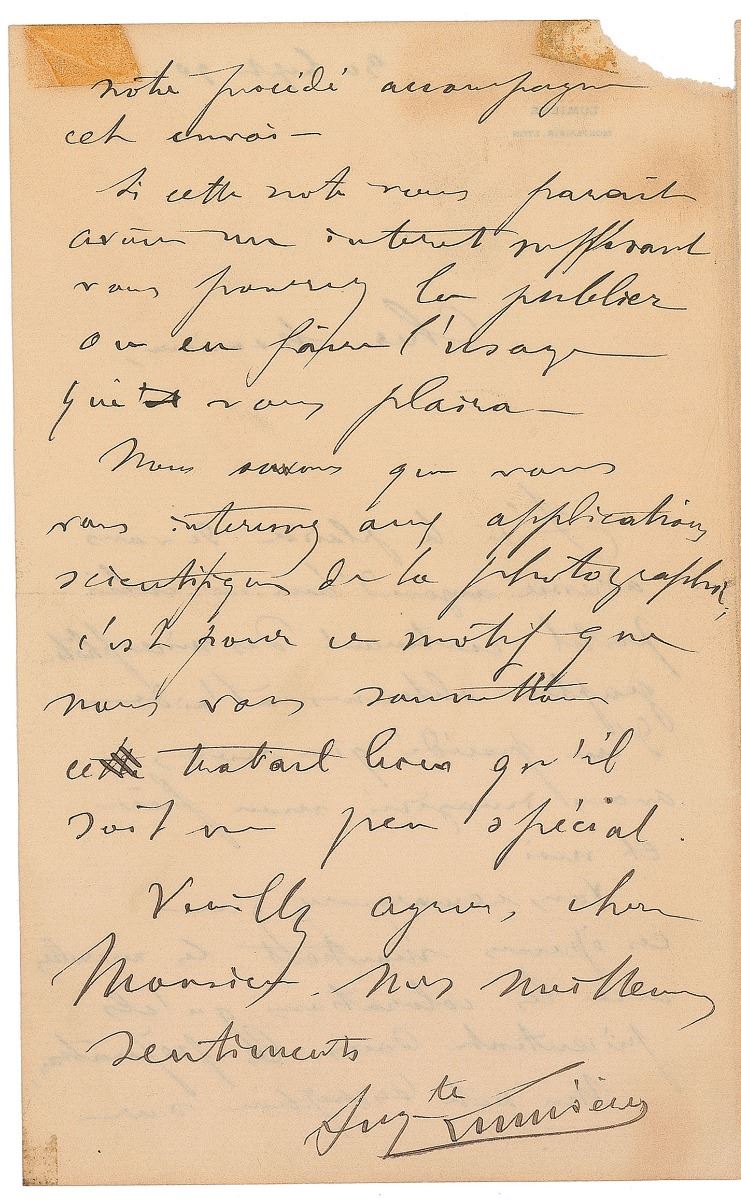 notre procédé accompagne
cet envoi —
Si cette note vous parait
avoir un interet suffisant
vous pourrez la publier
ou en faire l'usage
qui vous plaira —
Nous savons que vous
vous interessez aux applications
scientifiques de la photographie,
c'est pour ce motif que
nous vous soumettons
ce travail bien qu'il
soit un peu spécial.
Veuillez agréer, cher
Monsieur, nos meilleurs
sentiments
Aug^te Lumière